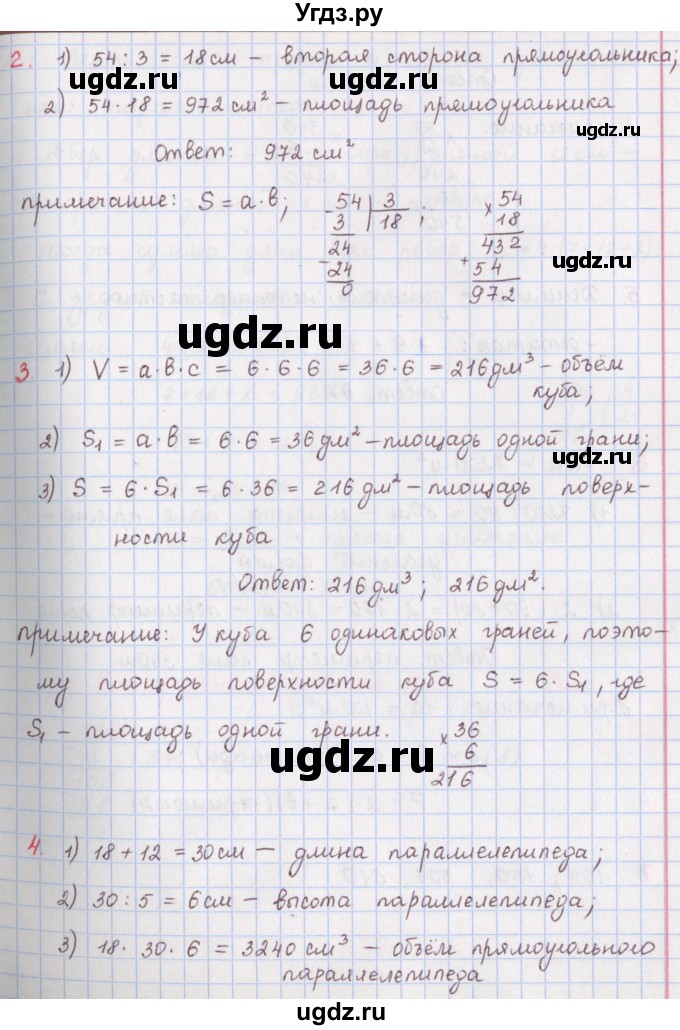 Угдз.ру
2. 1) 54 : 3 = 18 см – вторая сторона прямоугольника;
угдз.ру угдз.ру
2) 54 · 18 = 972 см² – площадь прямоугольника
угдз.ру
Ответ: 972 см²
примечание: S = a · в;
54 | 3
3 | 18 ;
24
24
0
× 54
18
432
+ 54
972
угдз.ру
угдз.ру
3. 1) V = a · в · c = 6 · 6 · 6 = 36 · 6 = 216 дм³ – объём
куба;
2) S₁ = a · в = 6 · 6 = 36 дм² – площадь одной грани;
угдз.ру
3) S = 6 · S₁ = 6 · 36 = 216 дм² – площадь поверх-
ности куба
угдз.ру
Ответ: 216 дм³ ; 216 дм².
примечание: У куба 6 одинаковых граней, поэто-
му площадь поверхности куба S = 6 · S₁, где
S₁ – площадь одной грани.
× 36
6
216
угдз.ру
угдз.ру
4. 1) 18 + 12 = 30 см – длина параллелепипеда;
2) 30 : 5 = 6 см – высота параллелепипеда;
угдз.ру
3) 18 · 30 · 6 = 3240 см³ – объём прямоугольного
параллелепипеда
угдз.ру
угдз.ру